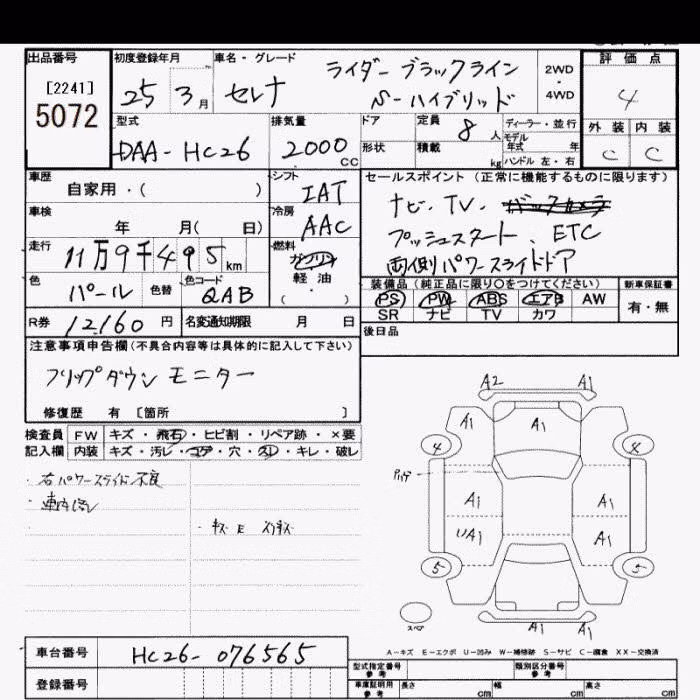 出品番号 初度登録年月 車名・グレード ライダー ブラックライン 2WD・4WD 評価点
[2241]
5072 25 3月 セレナ S-ハイブリッド 4
型式 排気量 ドア 定員 8人 ディーラー・並行 外装 内装
DAA-HC26 2000cc 形状 積載 kg モデル年式 年 ハンドル 左・右 C C
車歴 自家用・( ) シフト IAT セールスポイント(正常に機能するものに限ります)
車検 年 月( 日) 冷房 AAC ナビ・TV・
プッシュスタート、ETC
走行 11万9千495km 燃料 ガソリン 両側パワースライドドア
軽油
( )
色 パール 色替 色コード QAB 装備品(純正品に限り○をつけてください) 新車保証書
PS PW ABS エアB AW 有・無
SR ナビ TV カワ
R券 12,160円 名変通知期限 月 日 後日品
注意事項申告欄(不具合内容等は具体的に記入して下さい)
フリップダウンモニター
修復歴 有 [箇所 ]
検査員 FW キズ・飛石・ヒビ割・リペア跡・×要
記入欄 内装 キズ・汚レ・コゲ・穴・スレ・キレ・破レ
・右パワースライド不良
・車内汚レ
・キズ E スリキズ
A2 A1
A1 A1 A1
4 4
A1 A1
UA1 A1
5 5
スペア A1 A1
A-キズ E-エクボ U-凹み W-補修跡 S-サビ C-腐食 XX-交換済
車台番号 HC26-076565
型式指定番号 参考 類別区分番号 参考
登録番号 車庫証明用 参考 長さ cm 幅 cm 高さ cm